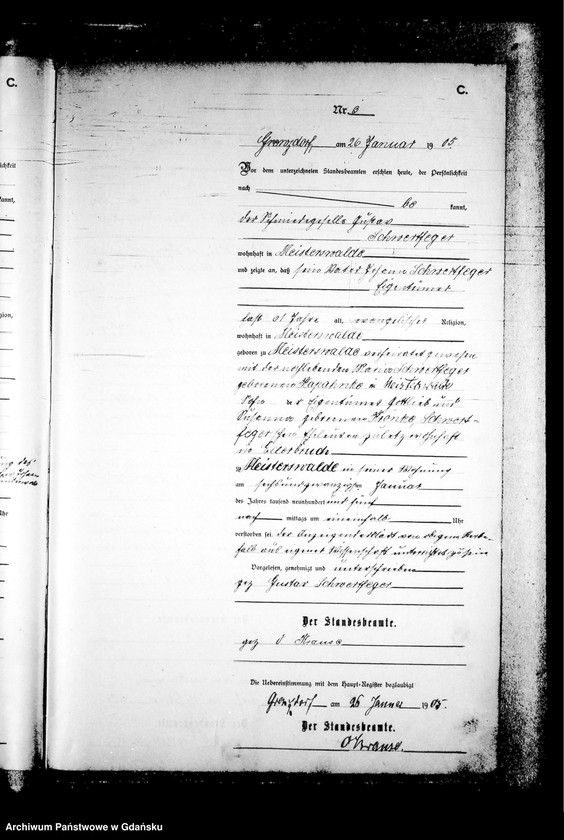 C.
C.
Nr. 6
Grenzdorf am 26 Januar 1905.
Vor dem unterzeichneten Standesbeamten erschien heute, der Persönlichkeit
nach
be kannt,
der Schmiedegeselle Gustav
Schwertfeger
wohnhaft in Meisterswalde
und zeigte an, daß sein Vater Johann Schwertfeger
Eigentümer
alt, evangelischer Religion,
wohnhaft in Meisterswalde
geboren zu Meisterswalde verheiratet gewesen
mit der nachlebenden Maria Schwertfeger
geborenen in Meisterswalde
Sohn des Eigentümers Gottlieb und
Susanna geborenen Schwert-
feger'schen Eheleuten zuletzt wohnhaft
in
zu Meisterswalde in seiner Wohnung
am sechsundzwanzigsten Januar
des Jahres tausend neunhundert und fünf
nach mittags um Uhr
verstorben sei. der Anzeigende erklärt von obigem Sterbe-
fall aus eigener Wissenschaft unterrichtet zu sein
Vorgelesen, genehmigt und unterschrieben
gez Gustav Schwertfeger
Der Standesbeamte.
gez O Krause
Die Uebereinstimmung mit dem Haupt-Register beglaubigt
Grenzdorf am 26 Januar 1905.
Der Standesbeamte.
O Krause.
Archiwum Państwowe w Gdańsku